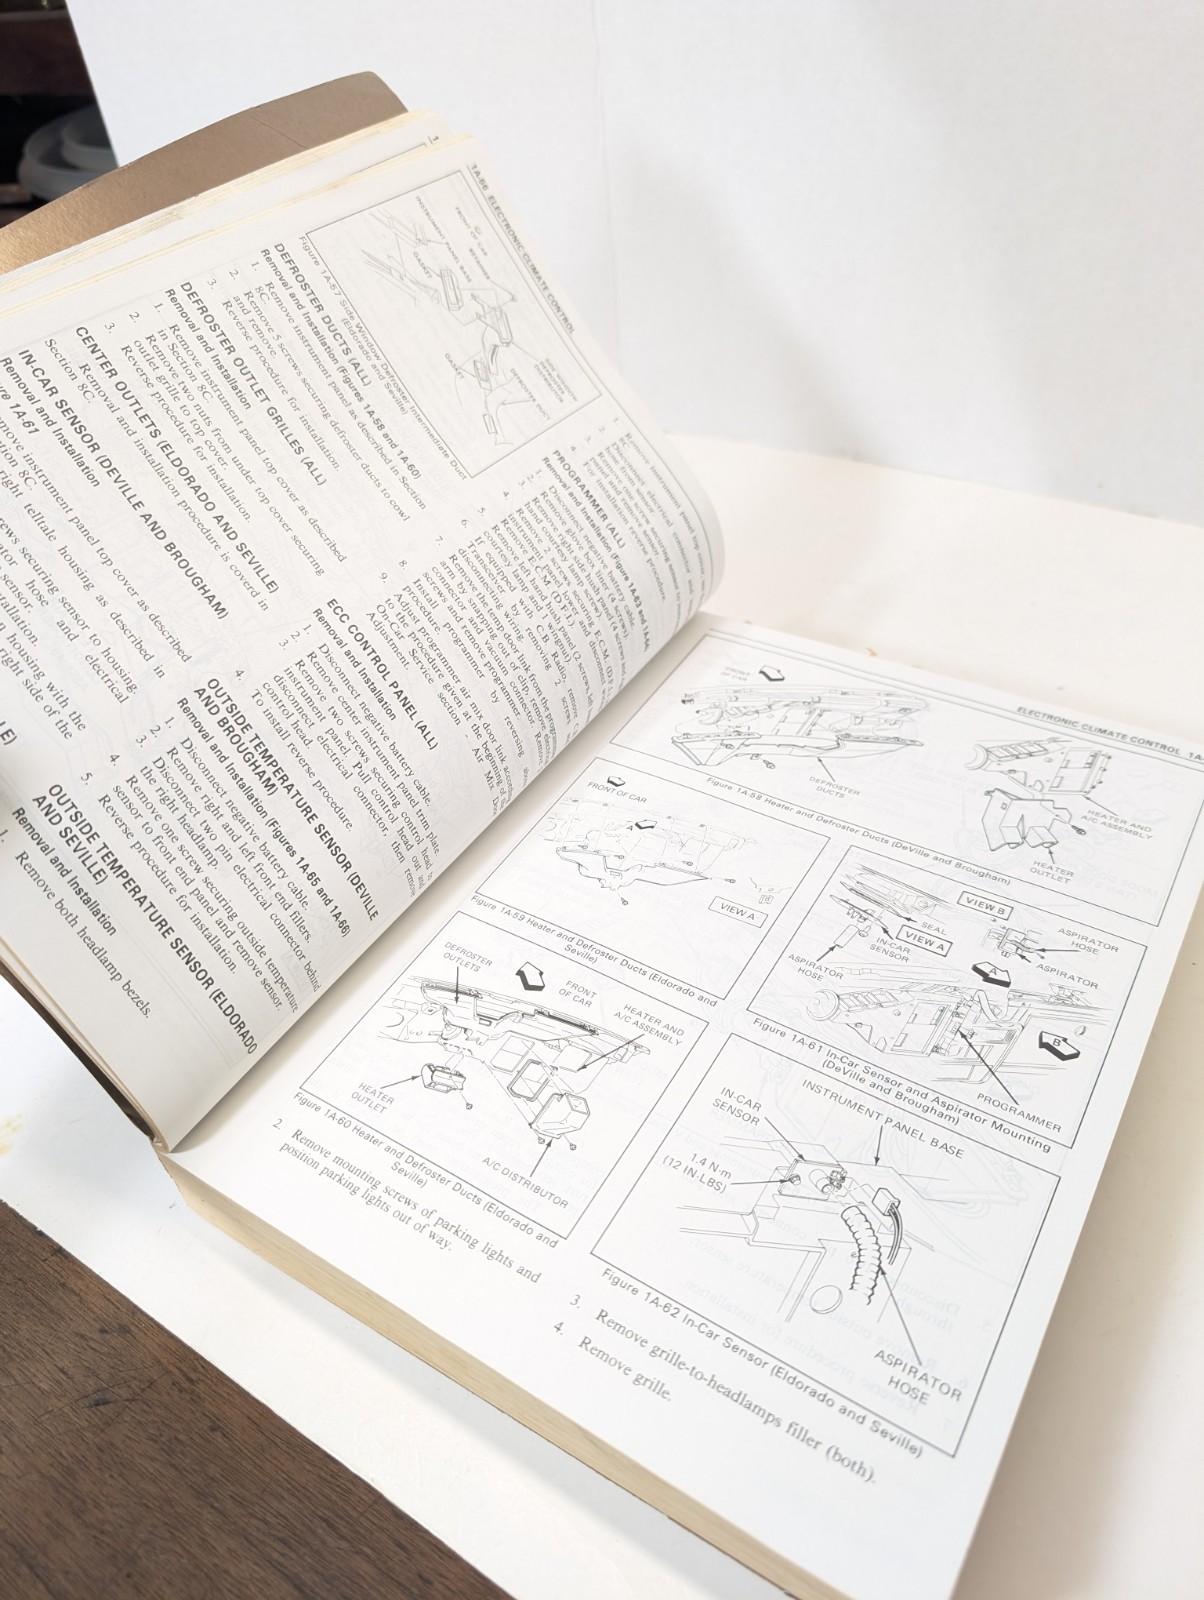 1A-66 ELECTRONIC CLIMATE CONTROL
INSTRUMENT PANEL BASE
GASKET
FRONT OF CAR
GASKET
DEFROSTER DUCT
Figure 1A-57 Side Window Defroster Intermediate Duct
(Eldorado and Seville)
DEFROSTER DUCTS (ALL)
Removal and Installation (Figures 1A-58 and 1A-60)
1. Remove instrument panel as described in Section
8C.
2. Remove 5 screws securing defroster ducts to cowl
and remove.
3. Reverse procedure for installation.
DEFROSTER OUTLET GRILLES (ALL)
Removal and Installation
1. Remove instrument panel top cover as described
in Section 8C.
2. Remove two nuts from under top cover securing
outlet grille to top cover.
3. Reverse procedure for installation.
CENTER OUTLETS (ELDORADO AND SEVILLE)
Removal and installation procedure is coverd in
Section 8C.
IN-CAR SENSOR (DEVILLE AND BROUGHAM)
Removal and Installation
1A-61
instrument panel top cover as described
8C.
right telltale housing as described in
securing sensor to housing.
hose and electrical
sensor.
housing with the
right side of the
1. Remove instrument panel top cover
Disconnect electrical connector and
hose from sensor.
Remove one screw securing sensor to
panel and remove sensor.
4. For installation reverse procedure.
PROGRAMMER (ALL)
Removal and Installation (Figures 1A-63 and 1A-64)
1. Disconnect negative battery cable.
2. Remove glove box liner (4 screws).
3. Remove right side hush panel (4 screws
hand courtesy lamp screw).
4. Remove 2 screws securing E.C.M. (D.F.I.)
instrument panel lower and disconnect
E.C.M. (D.F.I.)
5. Remove left hand hush panel (2 screws, left
courtesy lamp and 1 wingnut).
6. If equipped with C.B. Radio, remove
Transceiver by removing 2 screws
disconnecting wiring.
7. Remove the temp door link from the programmer
arm by snapping out of clip, remove electrical
connector and vacuum connector. Remove
screws and remove programmer.
8. Install programmer by reversing above
procedure.
9. Adjust programmer air mix door link according
to the procedure given at the beginning of
On-Car Service section - Air Mix Door
Adjustment.
ECC CONTROL PANEL (ALL)
Removal and Installation
1. Disconnect negative battery cable.
2. Remove center instrument panel trim plate.
3. Remove two screws securing control head to
instrument panel. Pull control head out and
disconnect electrical connector, then remove
control head.
4. To install reverse procedure.
OUTSIDE TEMPERATURE SENSOR (DEVILLE
AND BROUGHAM)
Removal and Installation (Figures 1A-65 and 1A-66)
1. Disconnect negative battery cable.
2. Remove right and left front end fillers.
3. Disconnect two pin electrical connector behind
the right headlamp.
4. Remove one screw securing outside temperature
sensor to front end panel and remove sensor.
5. Reverse procedure for installation.
OUTSIDE TEMPERATURE SENSOR (ELDORADO
AND SEVILLE)
Removal and Installation
1. Remove both headlamp bezels.
ELECTRONIC CLIMATE CONTROL 1A-
FRONT
OF CAR
DEFROSTER
DUCTS
HEATER AND
A/C ASSEMBLY
HEATER
OUTLET
Figure 1A-58 Heater and Defroster Ducts (DeVille and Brougham)
FRONT OF CAR
A
VIEW A
Figure 1A-59 Heater and Defroster Ducts (Eldorado and
Seville)
DEFROSTER
OUTLETS
FRONT
OF CAR
HEATER AND
A/C ASSEMBLY
HEATER
OUTLET
A/C DISTRIBUTOR
Figure 1A-60 Heater and Defroster Ducts (Eldorado and
Seville)
2 Remove mounting screws of parking lights and
position parking lights out of way.
VIEW B
SEAL
VIEW A
IN-CAR
SENSOR
ASPIRATOR
HOSE
ASPIRATOR
HOSE
ASPIRATOR
A
B
PROGRAMMER
Figure 1A-61 In-Car Sensor and Aspirator Mounting
(DeVille and Brougham)
IN-CAR
SENSOR
INSTRUMENT PANEL BASE
1.4 N·m
(12 IN-LBS)
ASPIRATOR
HOSE
Figure 1A-62 In-Car Sensor (Eldorado and Seville)
3. Remove grille-to-headlamps filler (both).
4. Remove grille.